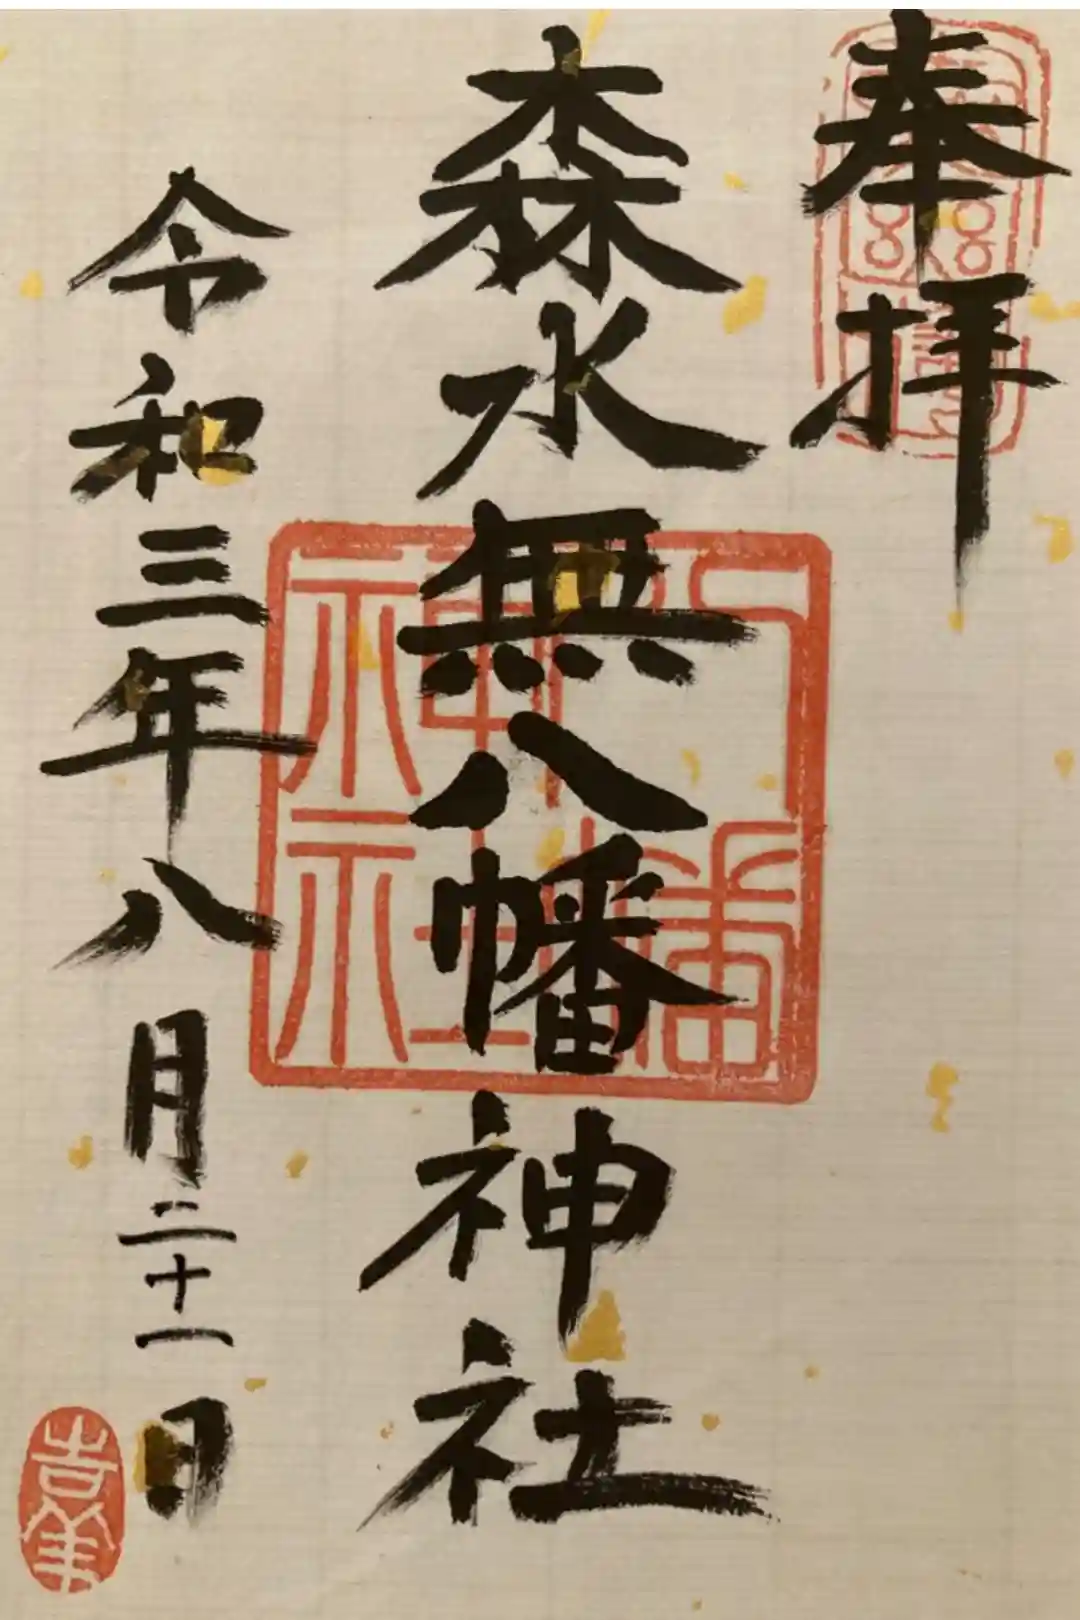 奉拝
森水無八幡神社
令和三年八月二十一日
八幡神社